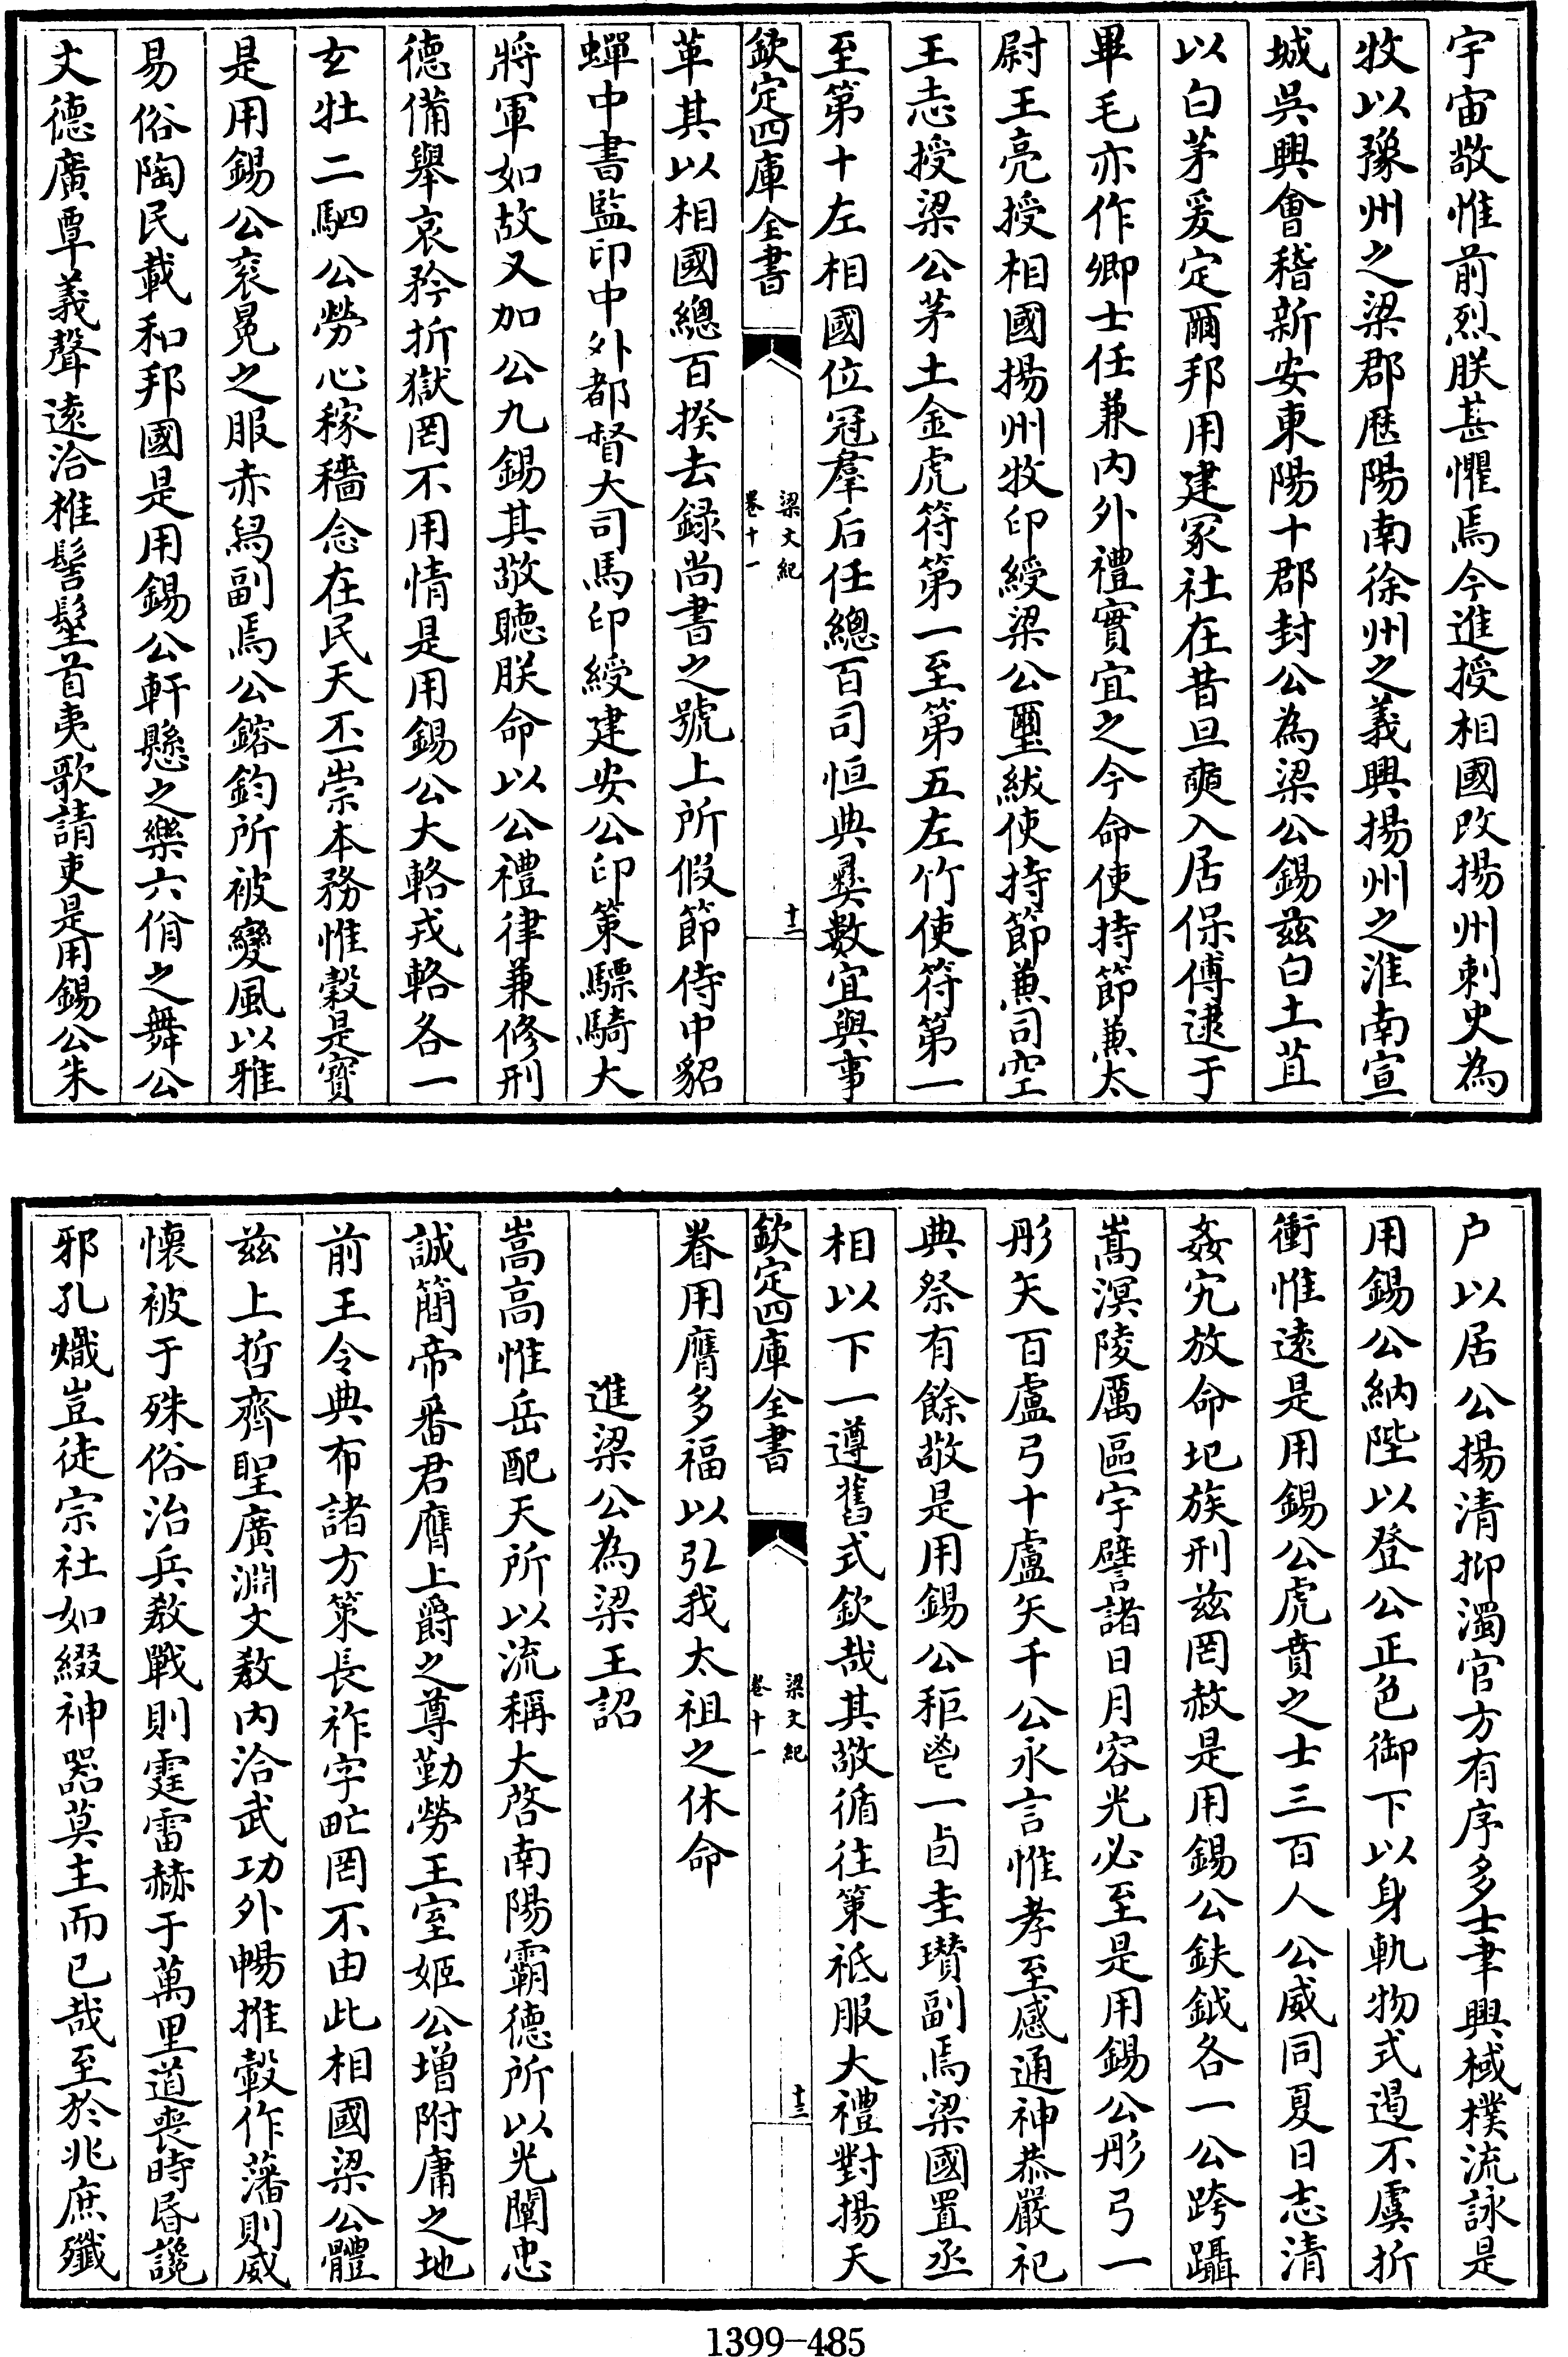 宇宙敬惟前烈朕甚懼焉今進授相國改揚州刺史為
牧以豫州之梁郡歷陽南徐州之義興揚州之淮南宣
城吳興會稽新安東陽十郡封公為梁公錫茲白土苴
以白茅爰定爾邦用建冢社在昔旦奭入居保傅逮于
畢毛亦作卿士任兼內外禮實宜之今命使持節兼太
尉王亮授相國揚州牧印綬梁公璽紱使持節兼司空
王志授梁公茅土金虎符第一至第五左竹使符第一
至第十左相國位冠羣后任總百司恒典彝數宜與事
欽定四庫全書
梁文紀
卷十一
十二
革其以相國總百揆去録尚書之號上所假節侍中貂
蟬中書監印中外都督大司馬印綬建安公印策驃騎大
將軍如故又加公九錫其敬聽朕命以公禮律兼修刑
德備舉哀矜折獄罔不用情是用錫公大輅戎輅各一
玄牡二駟公勞心稼穡念在民天丕崇本務惟穀是寶
是用錫公袞冕之服赤舄副焉公鎔鈞所被變風以雅
易俗陶民載和邦國是用錫公軒懸之樂六佾之舞公
文德廣覃義聲遠洽椎髻髽首夷歌請吏是用錫公朱
户以居公揚清抑濁官方有序多士聿興棫樸流詠是
用錫公納陛以登公正色御下以身軌物式遏不虞折
衝惟遠是用錫公虎賁之士三百人公威同夏日志清
姦宄放命圮族刑茲罔赦是用錫公鈇鉞各一公跨躡
嵩溟陵厲區宇譬諸日月容光必至是用錫公彤弓一
彤矢百盧弓十盧矢千公永言惟孝至感通神恭嚴祀
典祭有餘敬是用錫公秬鬯一卣圭瓚副焉梁國置丞
相以下一遵舊式欽哉其敬循往策祗服大禮對揚天
欽定四庫全書
梁文紀
卷十一
十三
眷用膺多福以弘我太祖之休命
進梁公為梁王詔
嵩高惟岳配天所以流稱大啓南陽霸德所以光闡忠
誠簡帝番君膺上爵之尊勤勞王室姬公增附庸之地
前王令典布諸方策長祚字甿罔不由此相國梁公體
茲上哲齊聖廣淵文教內洽武功外暢推轂作藩則威
懷被于殊俗治兵教戰則霆雷赫于萬里道喪時昏讒
邪孔熾豈徒宗社如綴神器莫主而已哉至於兆庶殲
1399-485